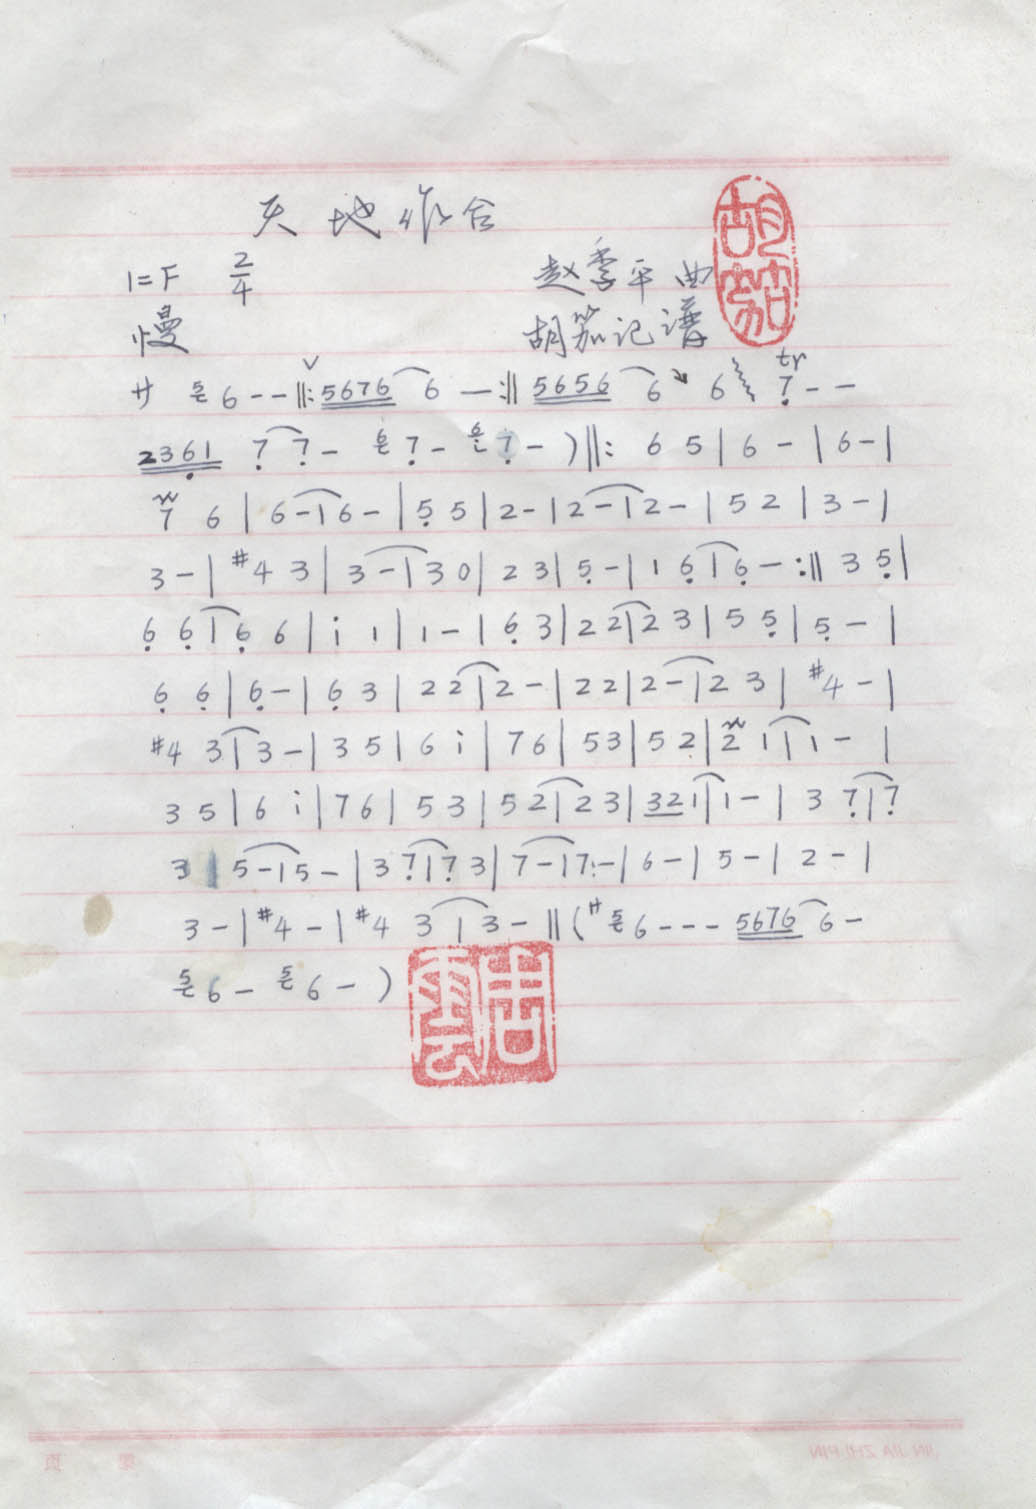 天地作合
1=F 2/4 赵季平曲
慢 胡笳记谱
胡笳
サ 56--‖:5676 6 —:‖ 5656 6 6 tr 7--
2361 7 7- 6 7- 6i 7-)‖: 6 5|6-|6-|
7 6|6-|6-|5 5|2-|2-|2-|5 2|3-|
3-|#4 3|3-|3 0|2 3|5-|1 6|6-:‖ 3 5|
6 6|6 6|i 1|1-|6 3|2 2|2 3|5 5|5-|
6 6|6-|6 3|2 2|2-|2 2|2-|2 3|#4-|
#4 3|3-|3 5|6 i|7 6|5 3|5 2|2 1|1-|
3 5|6 i|7 6|5 3|5 2|2 3|32 1|1-|3 7|7
3|5-|5-|3 7|7 3|7-|7-|6-|5-|2-|
3-|#4-|#4 3|3-‖(サ 56--- 5676 6-
56- 56-)